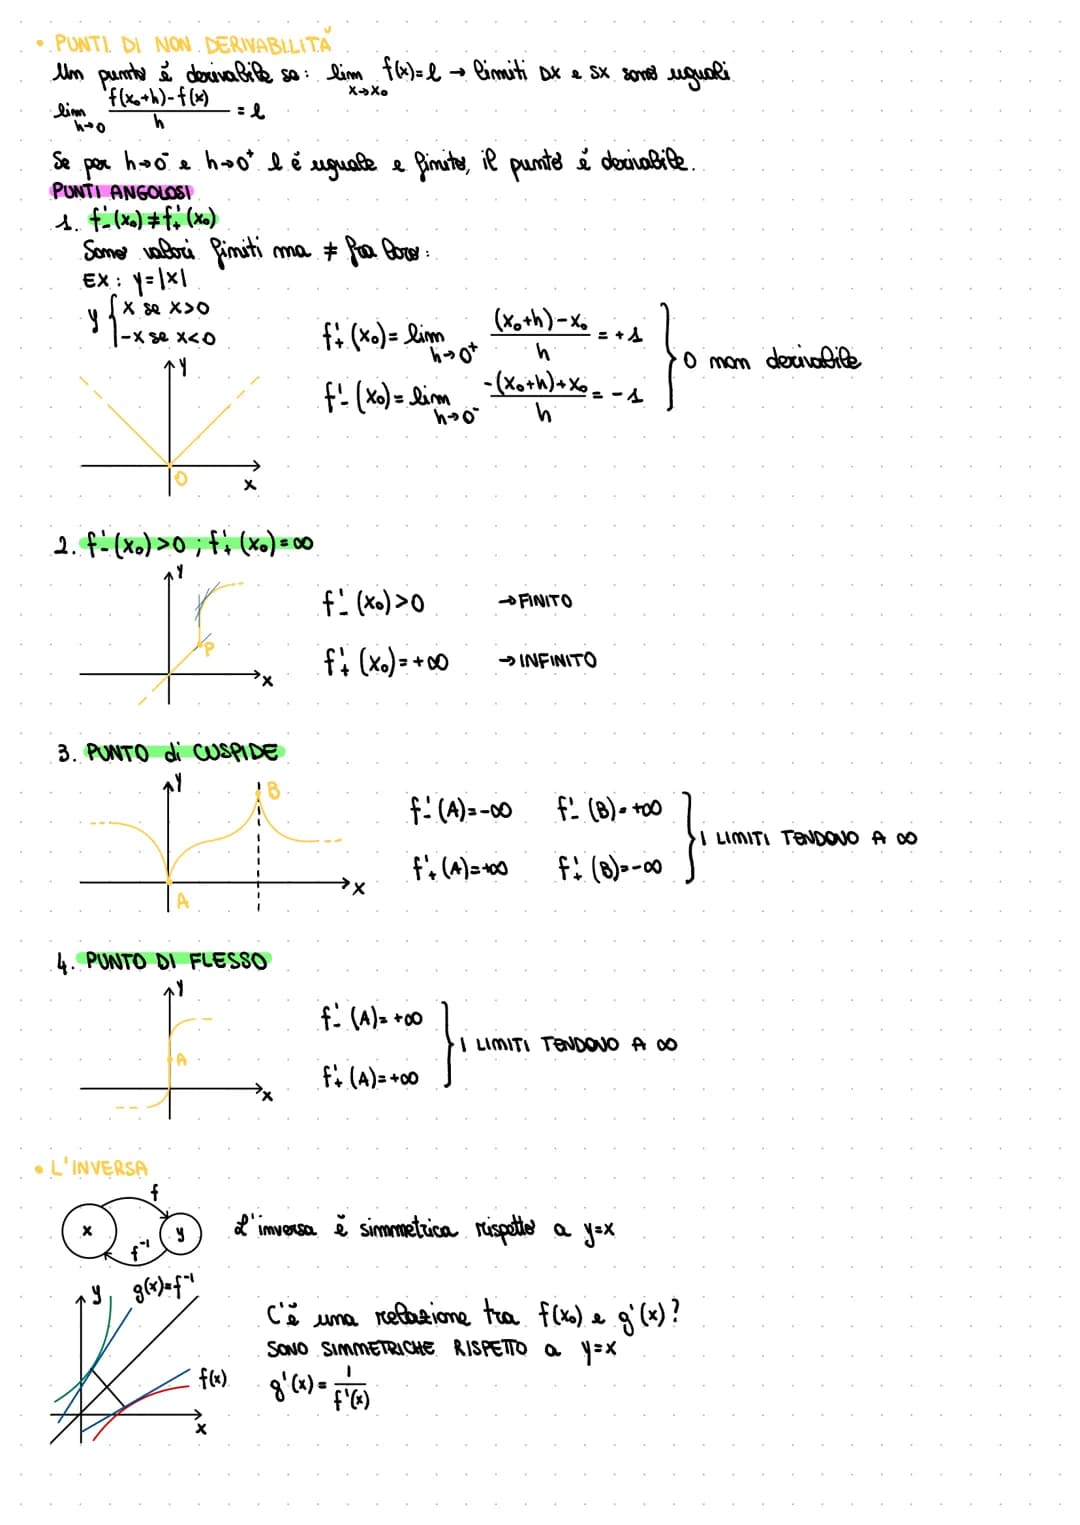 • PUNTI DI NON DERIVABILITÀ
Un punto è derivabile se: lim x→x₀ f(x)=l → limiti DX e SX sono uguali
lim h→0 f(x₀+h)-f(x) / h = l
Se per h→0⁻ e h→0⁺ l è uguale e finito, il punto è derivabile.
PUNTI ANGOLOSI
1. f'₋(x₀)≠f'₊(x₀)
Sono valori finiti ma ≠ fra loro:
EX: y=|x|
y { x se x>0
-x se x<0
f'₊(x₀)= lim h→0⁺ (x₀+h)-x₀ / h = +1
f'₋(x₀)= lim h→0⁻ -(x₀+h)+x₀ / h = -1
} 0 non derivabile
y
O
x
2. f'₋(x₀)>0 ; f'₊(x₀)=∞
y
P
x
f'₋(x₀)>0 → FINITO
f'₊(x₀)=+∞ → INFINITO
3. PUNTO di CUSPIDE
y
B
A
x
f'₋(A)=-∞ f'₋(B)=+∞
f'₊(A)=+∞ f'₊(B)=-∞
} I LIMITI TENDONO A ∞
4. PUNTO DI FLESSO
y
A
x
f'₋(A)=+∞
f'₊(A)=+∞
} I LIMITI TENDONO A ∞
• L'INVERSA
f
x
y
f⁻¹
L'inversa è simmetrica rispetto a y=x
y
g(x)=f⁻¹
f(x)
x
C'è una relazione tra f(x₀) e g'(x)?
SONO SIMMETRICHE RISPETTO a y=x
g'(x)= 1 / f'(x)